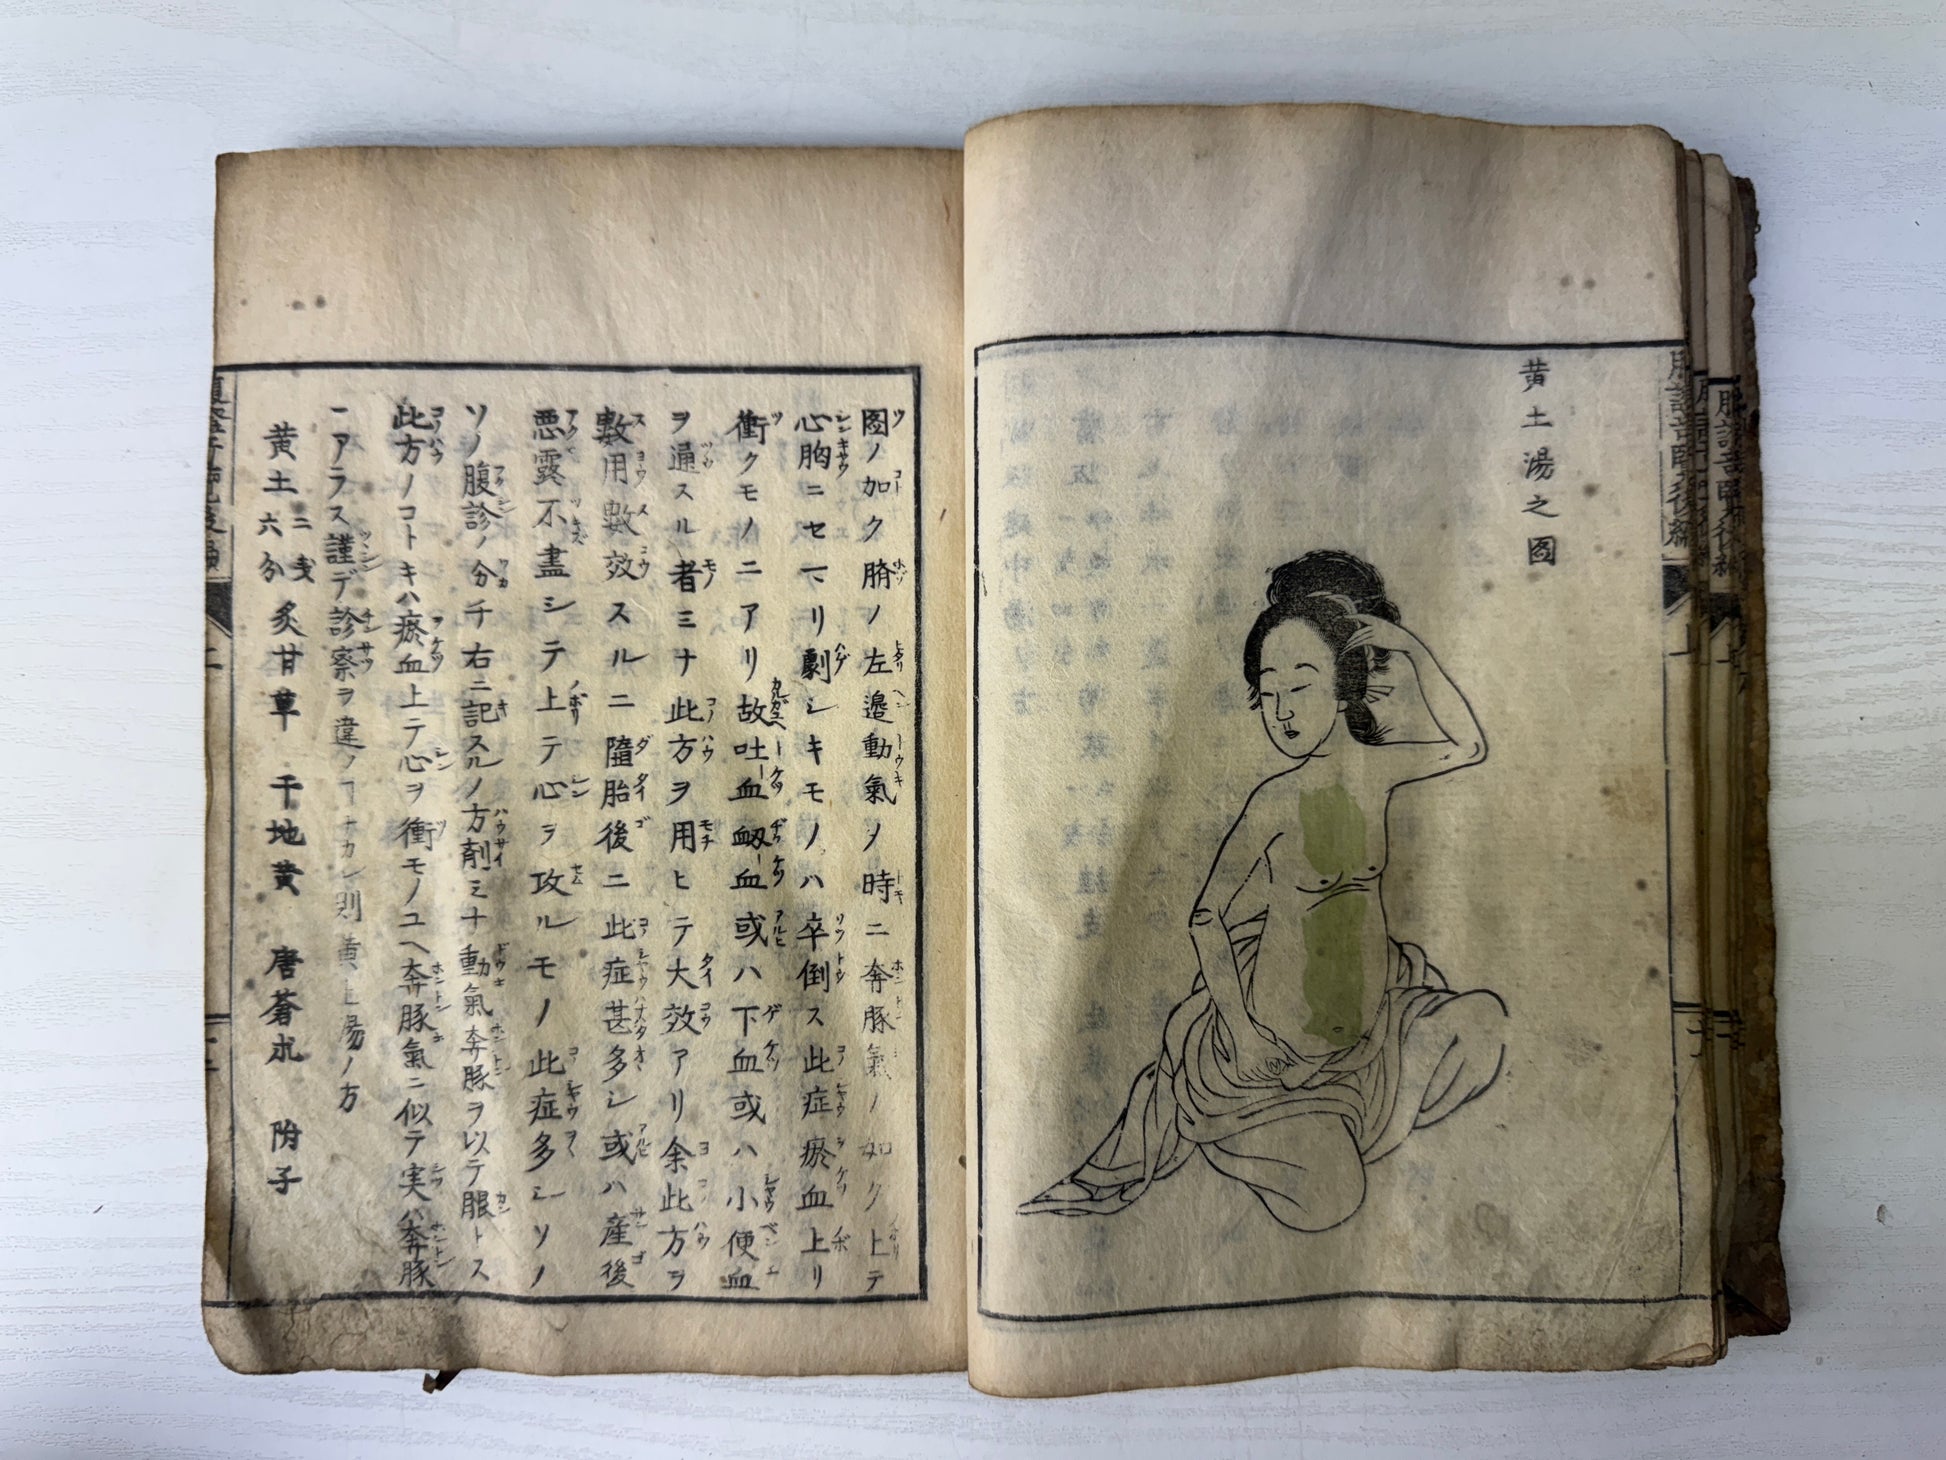 黄土湯之圖
圖ノ加ク臍ノ左邉動氣ノ時ニ奔豚氣ノ如ク上テ
心胸ニセマリ劇シキモノハ卒倒ス此症瘀血上リ
衝クモノニアリ故吐血衂血或ハ下血或ハ小便血
ヲ通スル者ミナ此方ヲ用ヒテ大效アリ余此方ヲ
數用數效スルニ墮胎後ニ此症甚多シ或ハ産後
悪露不盡シテ上テ心ヲ攻ルモノ此症多シソノ
ソノ腹診ノ分チ右ニ記スルノ方剤ミナ動氣奔豚ヲ以テ服トス
此方ノコトキハ瘀血上テ心ヲ衝モノユヘ奔豚氣ニ似テ実ハ奔豚
ニアラス謹デ診察ヲ違ノフナカレ則黄土湯ノ方
黄土六分二戔 炙甘草 干地黄 唐蒼朮 附子
腹診奇覧後編